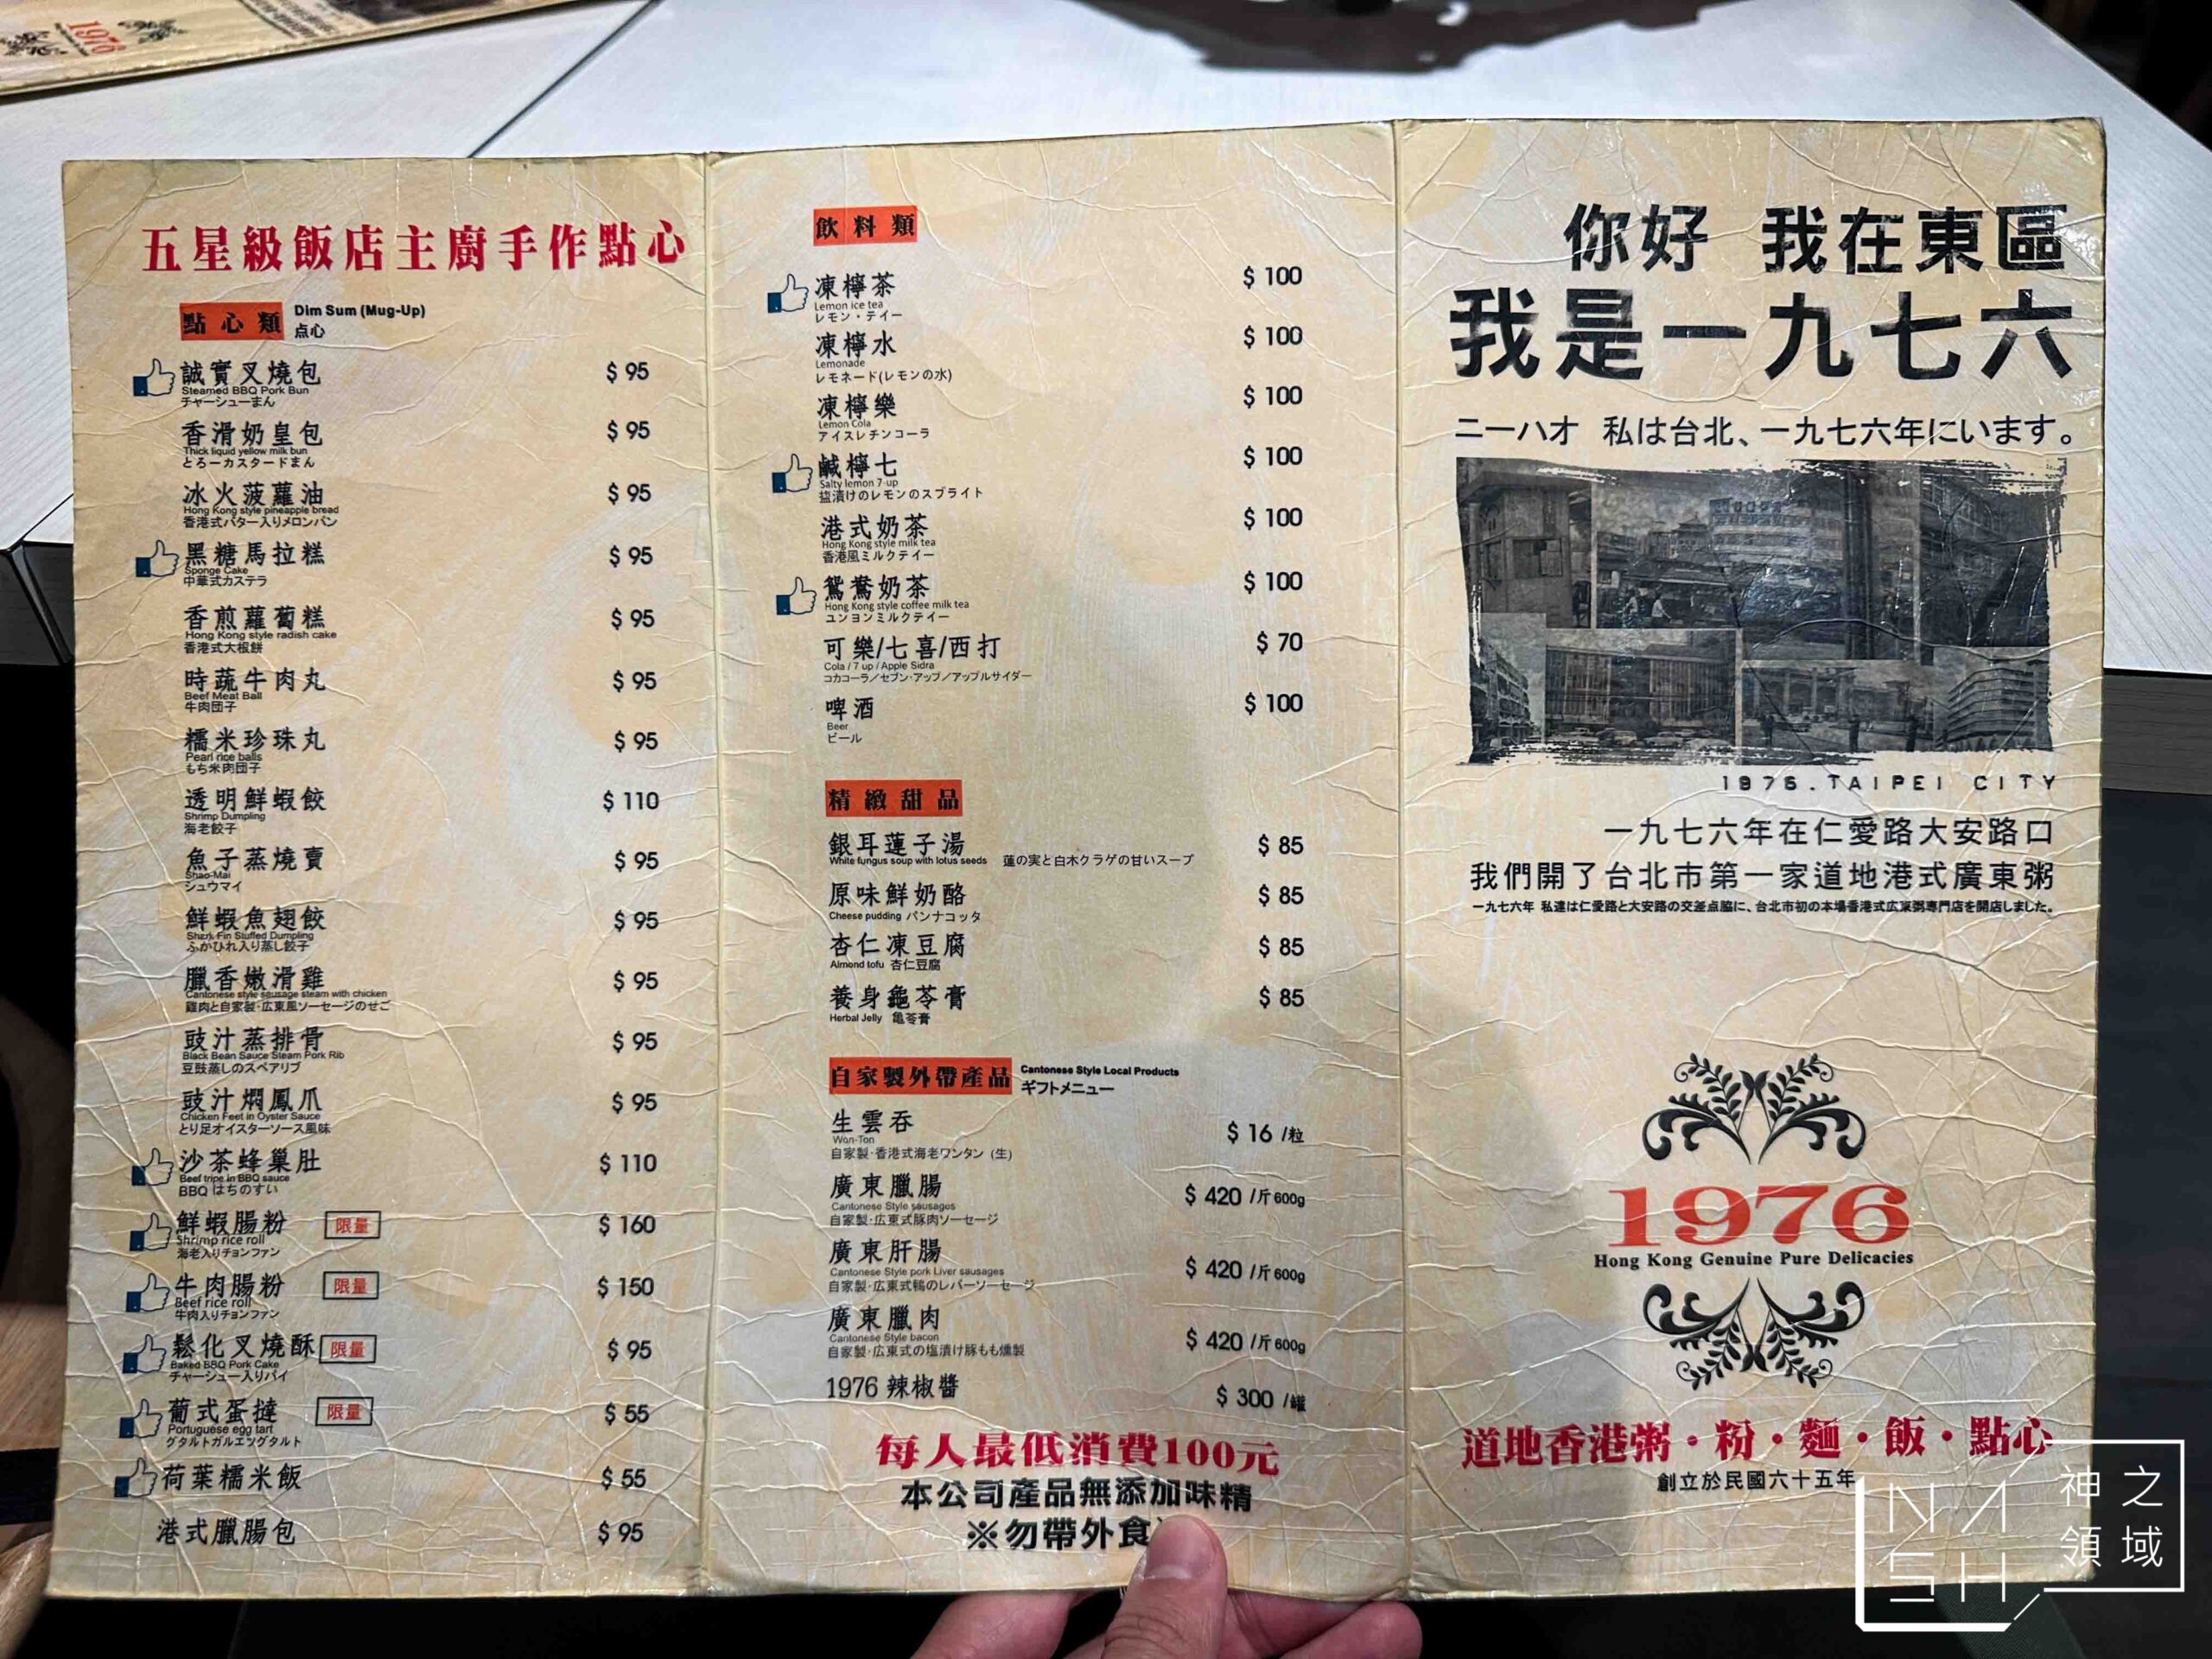 1976
五星級飯店主廚手作點心
點心類 Dim Sum (Mug-Up)
点心
誠實叉燒包 $ 95
Steamed BBQ Pork Bun
チャーシューまん
香滑奶皇包 $ 95
Thick liquid yellow milk bun
とろーカスタードまん
冰火菠蘿油 $ 95
Hong Kong style pineapple bread
香港式バター入りメロンパン
黑糖馬拉糕 $ 95
Sponge Cake
中華式カステラ
香煎蘿蔔糕 $ 95
Hong Kong style radish cake
香港式大根餅
時蔬牛肉丸 $ 95
Beef Meat Ball
牛肉団子
糯米珍珠丸 $ 95
Pearl rice balls
もち米肉団子
透明鮮蝦餃 $ 110
Shrimp Dumpling
海老餃子
魚子蒸燒賣 $ 95
Shao-Mai
シュウマイ
鮮蝦魚翅餃 $ 95
Shark Fin Stuffed Dumpling
ふかひれ入り蒸し餃子
臘香嫩滑雞 $ 95
Cantonese style sausage steam with chicken
雞肉と自家製·広東風ソーセージのせご
豉汁蒸排骨 $ 95
Black Bean Sauce Steam Pork Rib
豆豉蒸しのスペアリブ
豉汁燜鳳爪 $ 95
Chicken Feet in Oyster Sauce
とり足オイスターソース風味
沙茶蜂巢肚 $ 110
Beef tripe in BBQ sauce
BBQ はちのすい
鮮蝦腸粉 限量 $ 160
Shrimp rice roll
海老入りチョンファン
牛肉腸粉 限量 $ 150
Beef rice roll
牛肉入りチョンファン
鬆化叉燒酥 限量 $ 95
Baked BBQ Pork Cake
チャーシュー入りパイ
葡式蛋撻 限量 $ 55
Portuguese egg tart
グタルトガルエッグタルト
荷葉糯米飯 $ 55
港式臘腸包 $ 95
飲料類
凍檸茶 $ 100
Lemon ice tea
レモン・テイー
凍檸水 $ 100
Lemonade
レモネード(レモンの水)
凍檸樂 $ 100
Lemon Cola
アイスレチンコーラ
鹹檸七 $ 100
Salty lemon 7-up
塩漬けのレモンのスプライト
港式奶茶 $ 100
Hong Kong style milk tea
香港風ミルクテイー
鴛鴦奶茶 $ 100
Hong Kong style coffee milk tea
ユンヨンミルクテイー
可樂/七喜/西打 $ 70
Cola / 7 up / Apple Sidra
コカコーラ／セブン·アップ／アップルサイダー
啤酒 $ 100
Beer
ビール
精緻甜品
銀耳蓮子湯 $ 85
White fungus soup with lotus seeds 蓮の実と白木クラゲの甘いスープ
原味鮮奶酪 $ 85
Cheese pudding パンナコッタ
杏仁凍豆腐 $ 85
Almond tofu 杏仁豆腐
養身龜苓膏 $ 85
Herbal Jelly 亀苓膏
自家製外帶產品 Cantonese Style Local Products
ギフトメニュー
生雲吞 $ 16 /粒
Won-Ton
自家製·香港式海老ワンタン (生)
廣東臘腸 $ 420 /斤 600g
Cantonese Style sausages
自家製·広東式豚肉ソーセージ
廣東肝腸 $ 420 /斤 600g
Cantonese Style pork Liver sausages
自家製·広東式鴨のレバーソーセージ
廣東臘肉 $ 420 /斤 600g
Cantonese Style bacon
自家製·広東式の塩漬け豚もも燻製
1976 辣椒醬 $ 300 /罐
每人最低消費100元
本公司產品無添加味精
※勿帶外食
你好 我在東區
我是一九七六
ニーハオ 私は台北、一九七六年にいます。
1976.TAIPEI CITY
一九七六年在仁愛路大安路口
我們開了台北市第一家道地港式廣東粥
一九七六年 私達は仁愛路と大安路の交差点脇に、台北市初の本場香港式広東粥専門店を開店しました。
1976
Hong Kong Genuine Pure Delicacies
道地香港粥・粉・麵・飯・點心
創立於民國六十五年
NASH 神之領域